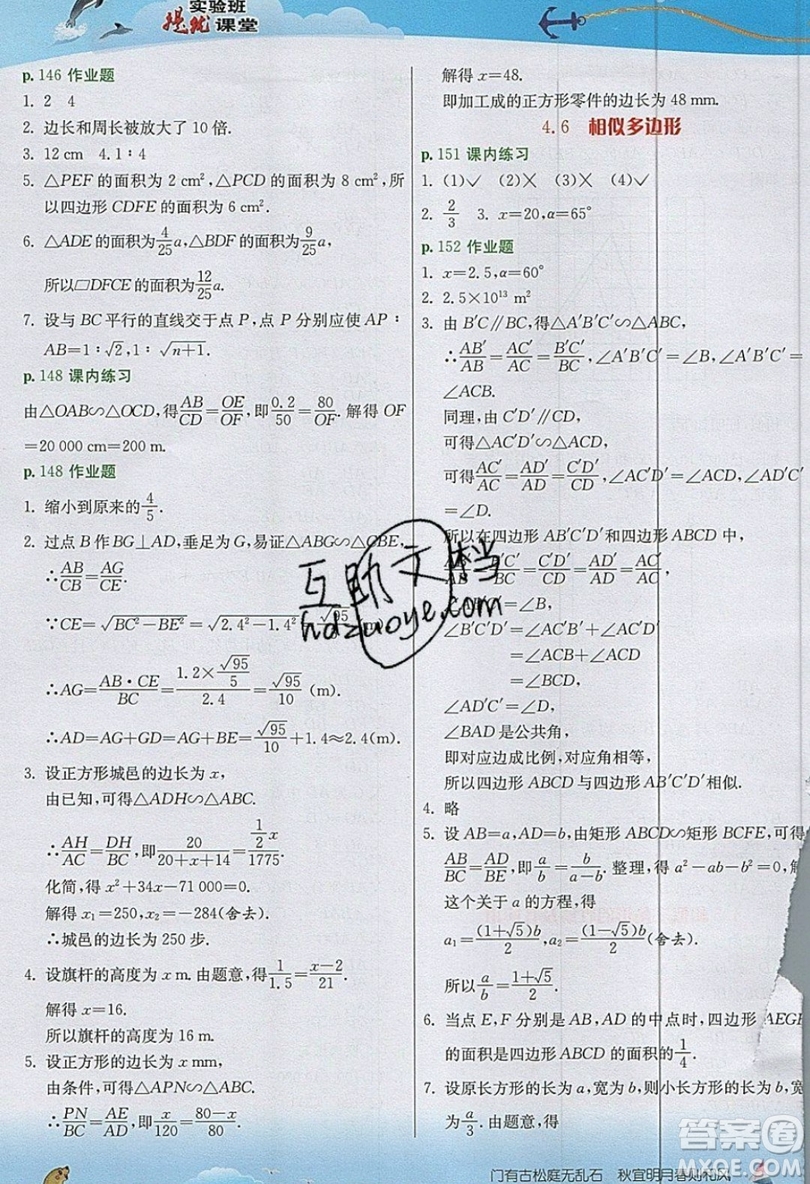 实验班
提优课堂
p.146 作业题
1. 2 4
2. 边长和周长被放大了 10 倍.
3. 12 cm 4. 1∶4
5. △PEF 的面积为 2 cm², △PCD 的面积为 8 cm², 所
以四边形 CDFE 的面积为 6 cm².
6. △ADE 的面积为 4/25 a, △BDF 的面积为 9/25 a,
所以▱DFCE 的面积为 12/25 a.
7. 设与 BC 平行的直线交于点 P, 点 P 分别应使 AP∶
AB=1∶√2, 1∶√(n+1).
p.148 课内练习
由△OAB∽△OCD, 得 AB/CD=OE/OF, 即 0.2/50=80/OF. 解得 OF
=20 000 cm=200 m.
p.148 作业题
1. 缩小到原来的 4/5.
2. 过点 B 作 BG⊥AD, 垂足为 G, 易证△ABG∽△CBE,
∴AB/CB=AG/CE.
∵CE=√(BC²-BE²)=√(2.4²-1.4²)=√95/5
∴AG=AB·CE/BC=(1.2×√95/5)/2.4=√95/10 (m).
∴AD=AG+GD=AG+BE=√95/10+1.4≈2.4(m).
3. 设正方形城邑的边长为 x,
由已知, 可得△ADH∽△ABC.
∴AH/AC=DH/BC, 即 20/(20+x+14)=(1/2 x)/1775.
化简, 得 x²+34x-71 000=0.
解得 x₁=250, x₂=-284(舍去).
∴城邑的边长为 250 步.
4. 设旗杆的高度为 x m. 由题意, 得 1/1.5=(x-2)/21.
解得 x=16.
所以旗杆的高度为 16 m.
5. 设正方形的边长为 x mm,
由条件, 可得△APN∽△ABC,
∴PN/BC=AE/AD, 即 x/120=(80-x)/80.
解得 x=48.
即加工成的正方形零件的边长为 48 mm.
4.6 相似多边形
p.151 课内练习
1. (1)✓ (2)✗ (3)✗ (4)✓
2. 2/3 3. x=20, α=65°
p.152 作业题
1. x=2.5, α=60°
2. 2.5×10¹³ m²
3. 由 B′C′∥BC, 得△A′B′C′∽△ABC,
∴AB′/AB=AC′/AC=B′C′/BC, ∠A′B′C′=∠B, ∠A′C′B′=
∠ACB.
同理, 由 C′D′∥CD,
可得△AC′D′∽△ACD,
可得 AC′/AC=AD′/AD=C′D′/CD, ∠AC′D′=∠ACD, ∠AD′C′
=∠D.
所以在四边形 AB′C′D′和四边形 ABCD 中,
AB′/AB=B′C′/BC=C′D′/CD=AD′/AD,
=∠B,
∠B′C′D′=∠AC′B′+∠AC′D′
=∠ACB+∠ACD
=∠BCD,
∠AD′C′=∠D,
∠BAD 是公共角,
即对应边成比例, 对应角相等,
所以四边形 ABCD 与四边形 AB′C′D′相似.
4. 略
5. 设 AB=a, AD=b, 由矩形 ABCD∽矩形 BCFE, 可得
AB/BC=AD/BE, 即 a/b=b/(a-b). 整理, 得 a²-ab-b²=0, 解
这个关于 a 的方程, 得
a₁=(1+√5)b/2, a₂=(1-√5)b/2 (舍去).
所以 a/b=(1+√5)/2.
6. 当点 E, F 分别是 AB, AD 的中点时, 四边形 AEGF
的面积是四边形 ABCD 的面积的 1/4.
7. 设原长方形的长为 a, 宽为 b, 则小长方形的长为 b, 宽
为 a/3. 由题意, 得
互助文档
hdzuoye.com
答案圈
门有古松庭无乱石 秋宜明月春则和风